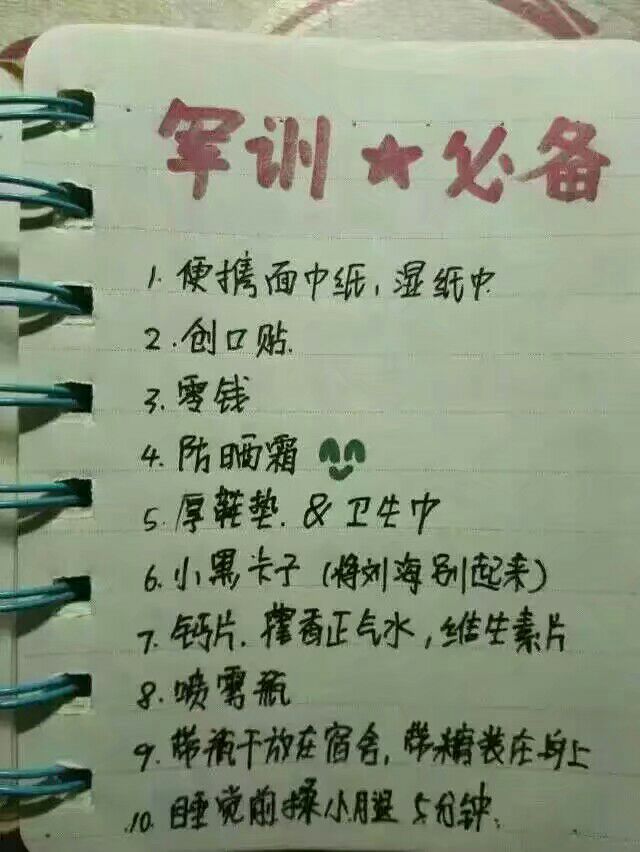 军训★必备
1. 便携面巾纸,湿纸巾
2. 创口贴.
3. 零钱
4. 防晒霜
5. 厚鞋垫. & 卫生巾
6. 小黑卡子(将刘海别起来)
7. 钙片. 藿香正气水,维生素片
8. 喷雾瓶
9. 带瓶干放在宿舍,带糖装在身上
10. 睡觉前揉小腿5分钟.